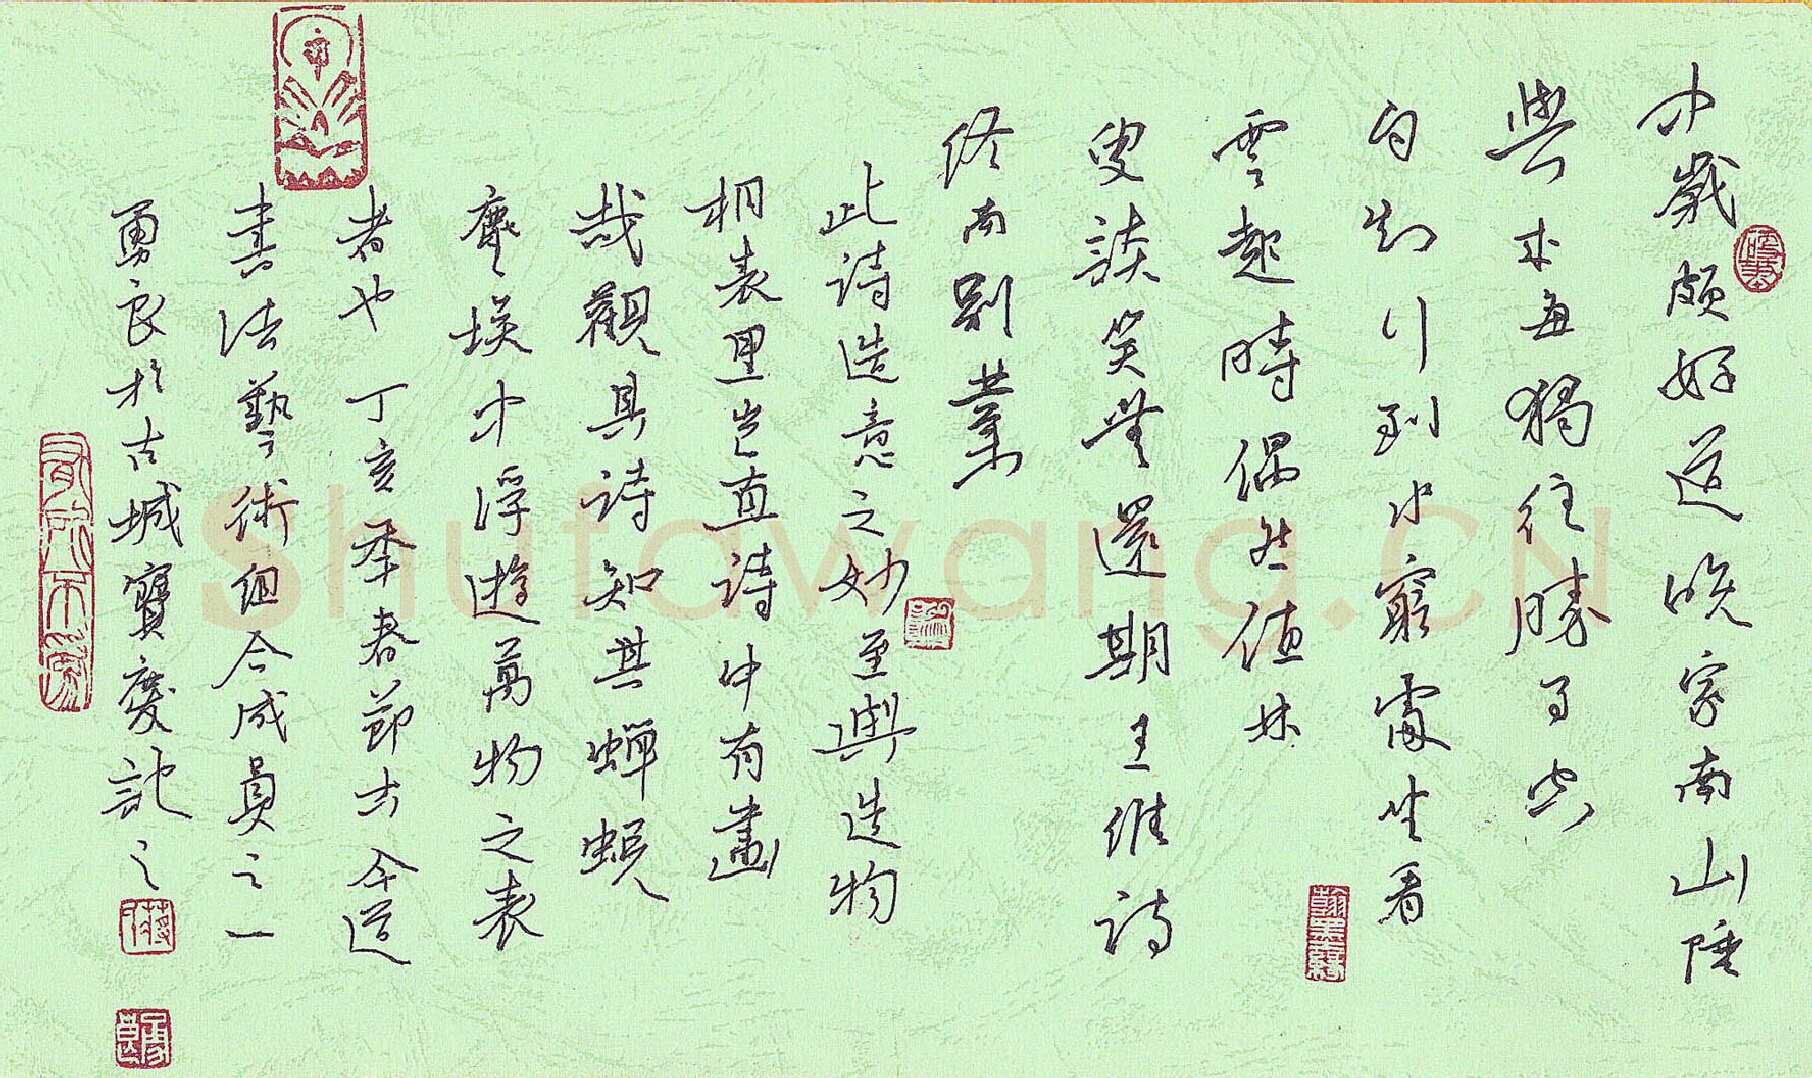 中歲頗好道晚家南山陲
興來每獨往勝事空
自知行到水窮處坐看
雲起時偶然值林
叟談笑無還期王維詩
終南別業
此詩造意之妙至與造物
相表里豈直詩中有畫
哉觀其詩知其蟬蛻
塵埃中浮遊萬物之表
者也丁亥季春節古今道
書法藝術組合成員之一
勇良於古城寶慶記之
翰墨緣
Shufawang.CN